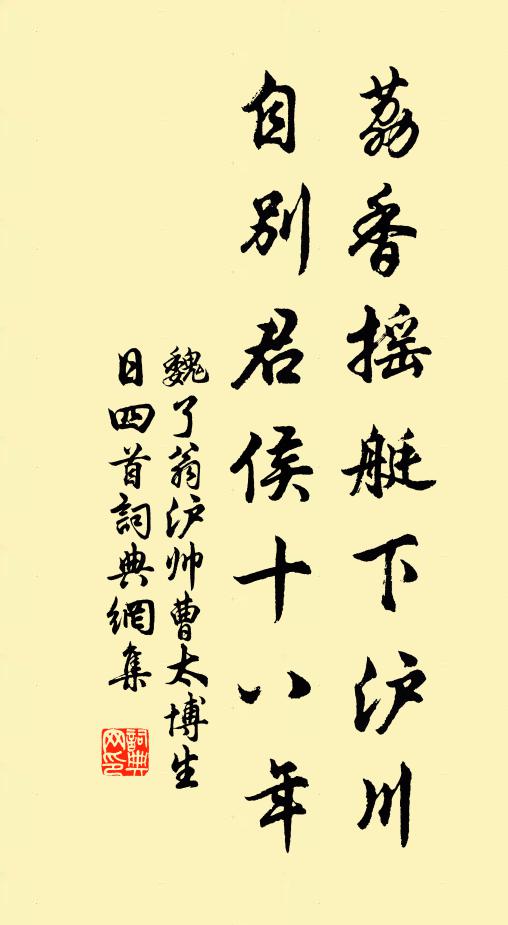 荔香摇艇下沪川
自别君侯十八年
魏了翁沪帅曹太博生
日四首詞典網集
詞典网印